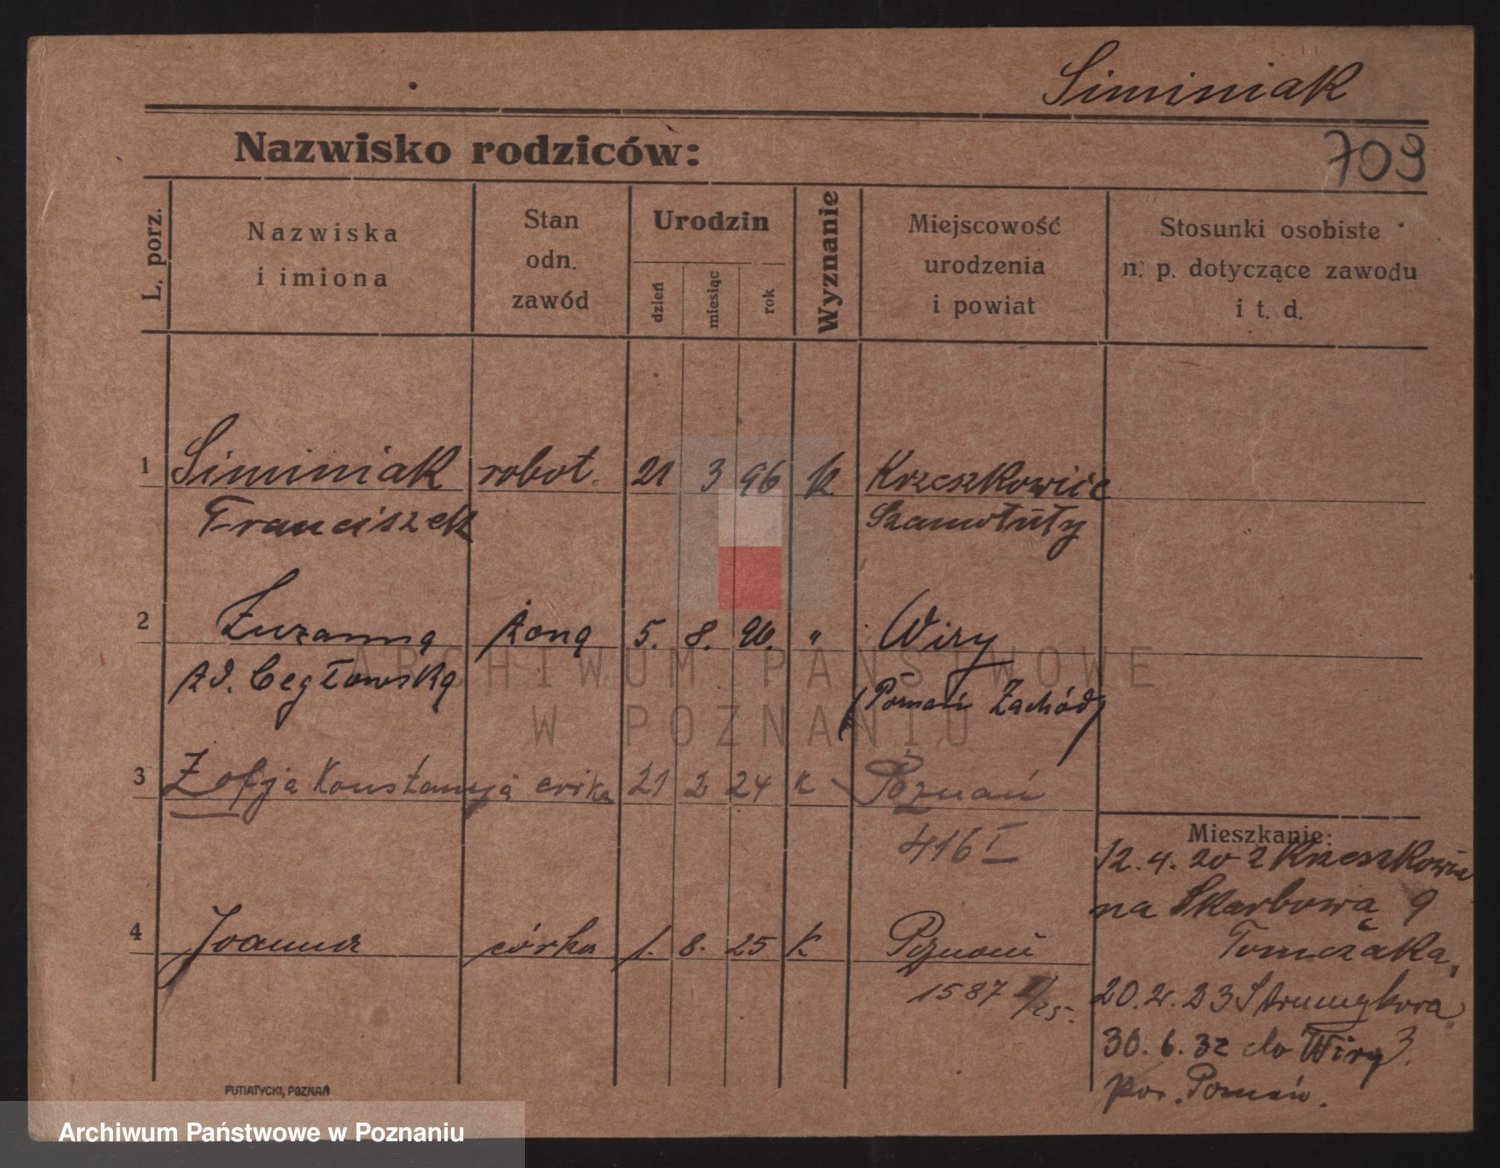 Siminiak
Nazwisko rodziców:
709
L. porz.
Nazwiska
i imiona
Stan
odn.
zawód
Urodzin
dzień
miesiąc
rok
Wyznanie
Miejscowość
urodzenia
i powiat
Stosunki osobiste
n. p. dotyczące zawodu
i t. d.
1 Siminiak robot. 21 3 96 k Krzeszkowice
Franciszek Szamotuły
2 Zuzanna żona 5. 8. 96. " Wiry
zd. Cegłowska (Poznań Zachód)
3 Zofja Konstancja córka 21 2 24 k Poznań
416 I
4 Joanna córka 1. 8. 25 k Poznań
1587 /25.
Mieszkanie:
12.4.20 z Krzeszkowic
na Skarbowa 9
Tomczaka,
20. 23 Strumykowa
30.6.32 do Wiry 3.
pow. Poznań.
PUTIATYCKI, POZNAŃ
ARCHIWUM PAŃSTWOWE
W POZNANIU
Archiwum Państwowe w Poznaniu